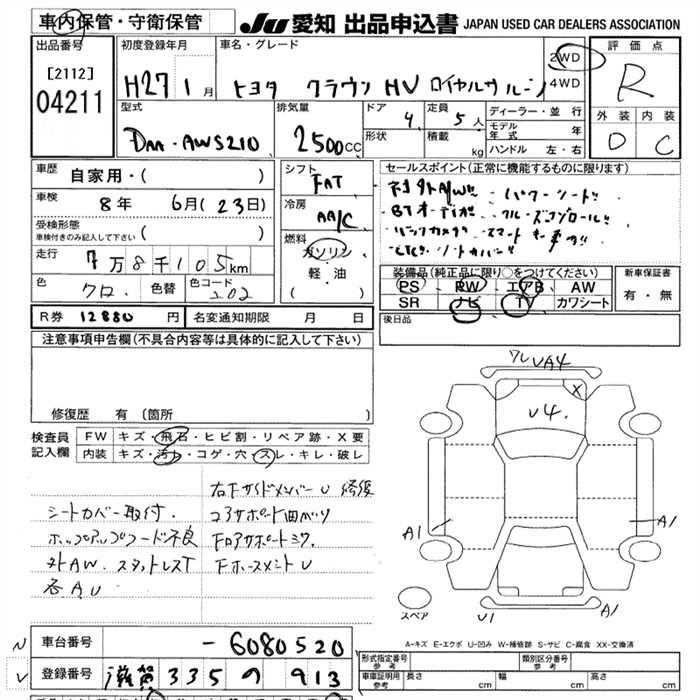 車内保管・守衛保管
JU 愛知 出品申込書 JAPAN USED CAR DEALERS ASSOCIATION
出品番号
[2112]
04211
初度登録年月
H27 1月
車名・グレード
トヨタ クラウン HV ロイヤルサルーン
2WD
4WD
評価点
R
型式
DAA-AWS210
排気量
2500cc
ドア 4
定員 5人
形状
積載 kg
ディーラー・並行
モデル年式 年
ハンドル 左・右
外装 内装
D C
車歴 自家用・( )
車検 8年 6月(23日)
受検形態
車検付きのみ記入して下さい ( )
走行 7万8千105km
色 クロ 色替 色コード 202
シフト
FAT
冷房
AA/C
燃料
ガソリン
軽・油
( )
セールスポイント(正常に機能するものに限ります)
・社外A/W!! ・パワーシート!!
・BTオーディオ!! クルーズコントロール!!
・バックカメラ スマートキー
・ETC!! シートカバー!!
装備品(純正品に限り○をつけてください)
PS PW エアB AW
SR ナビ TV カワシート
新車保証書
有・無
R券 12880円 名変通知期限 月 日
後日品
注意事項申告欄(不具合内容等は具体的に記入して下さい)
修復歴 有(箇所
検査員記入欄
FW キズ・飛石・ヒビ割・リペア跡・X要
内装 キズ・汚れ・コゲ・穴・スレ・キレ・破レ
右下サイドメンバーU 修復
シートカバー取付. コアサポート凹ベツ
ホップアップフード不良 Fロアサポートミク.
外AW. スタットレスT Fホースメント U
各AU
ワレ UA4
X
U4.
A1
A1
スペア
U1
A1
A-キズ E-エクボ U-凹み W-補修跡 S-サビ C-腐食 XX-交換済
車台番号 -6080520
登録番号 滋賀 335 の 913
形式指定番号 参考
類別区分番号 参考
車庫証明用 参考 長さ cm 幅 cm 高さ cm